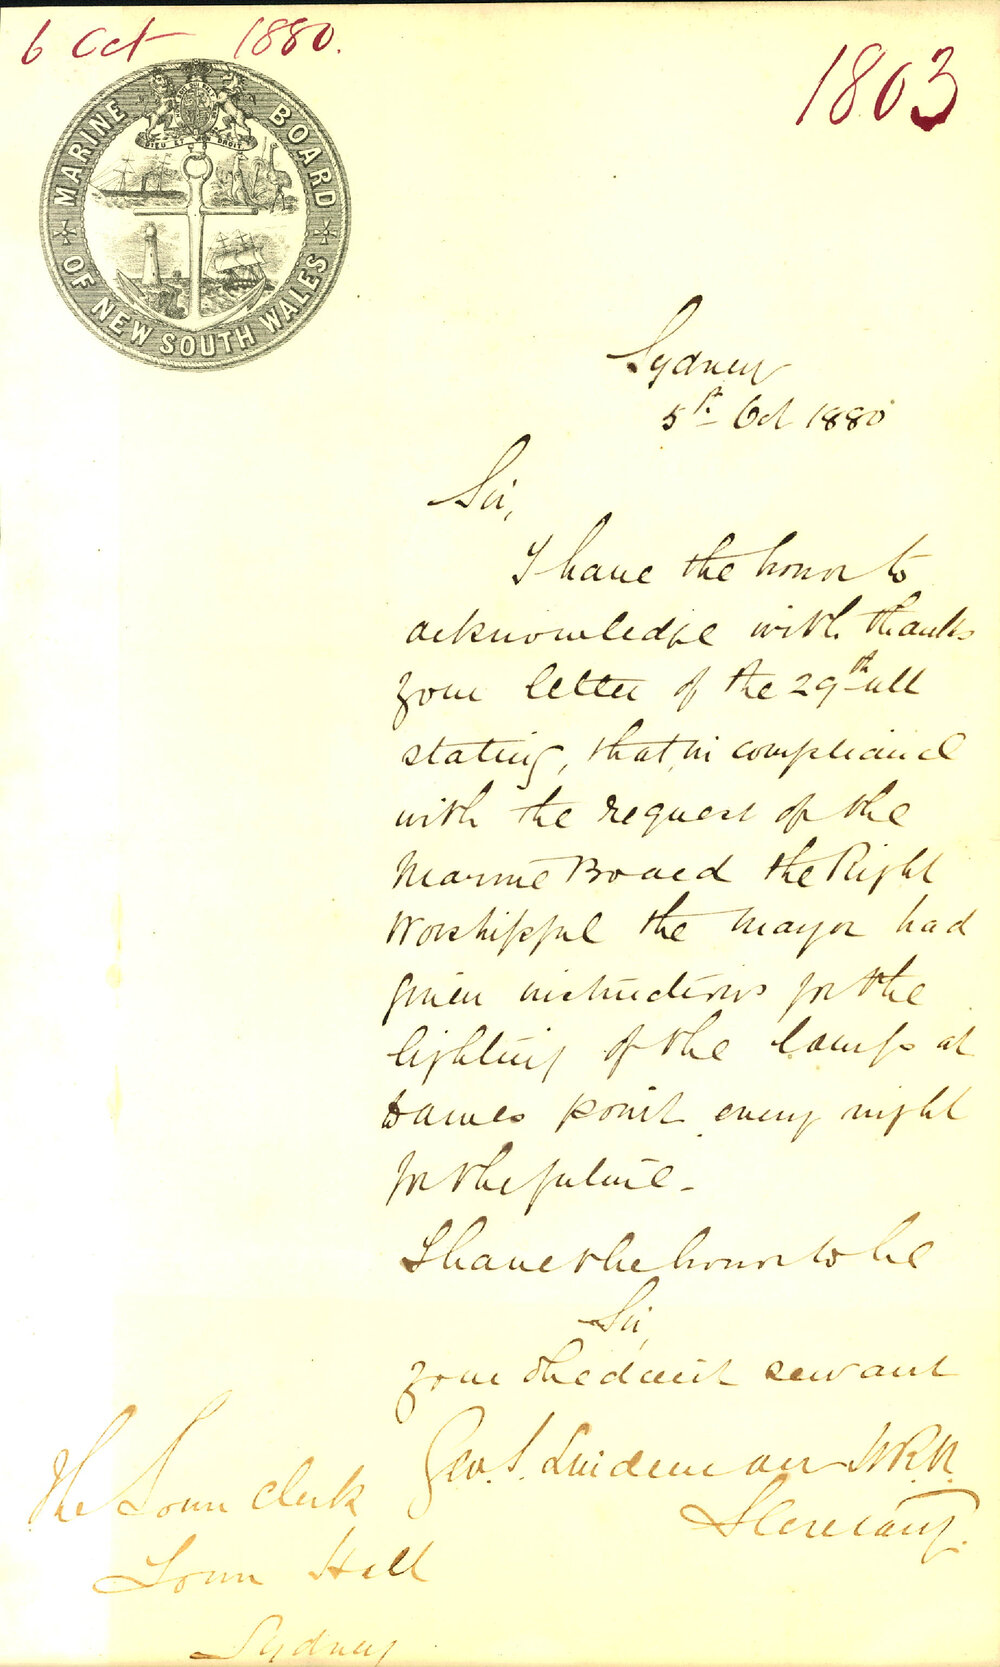 6 Oct 1880.
1803
MARINE BOARD OF NEW SOUTH WALES
DIEU ET MON DROIT
Sydney
5th Oct 1880
Sir,
I have the honor to
acknowledge with thanks
your letter of the 29th ult
stating, that, in compliance
with the request of the
Marine Board the Right
Worshipful the Mayor had
given instructions for the
lighting of the lamps at
Dawes point every night
for the future.
I have the honor to be
Sir,
your obedient servant
Geo. S. Lindeman
Secretary.
The Town Clerk
Town Hall
Sydney